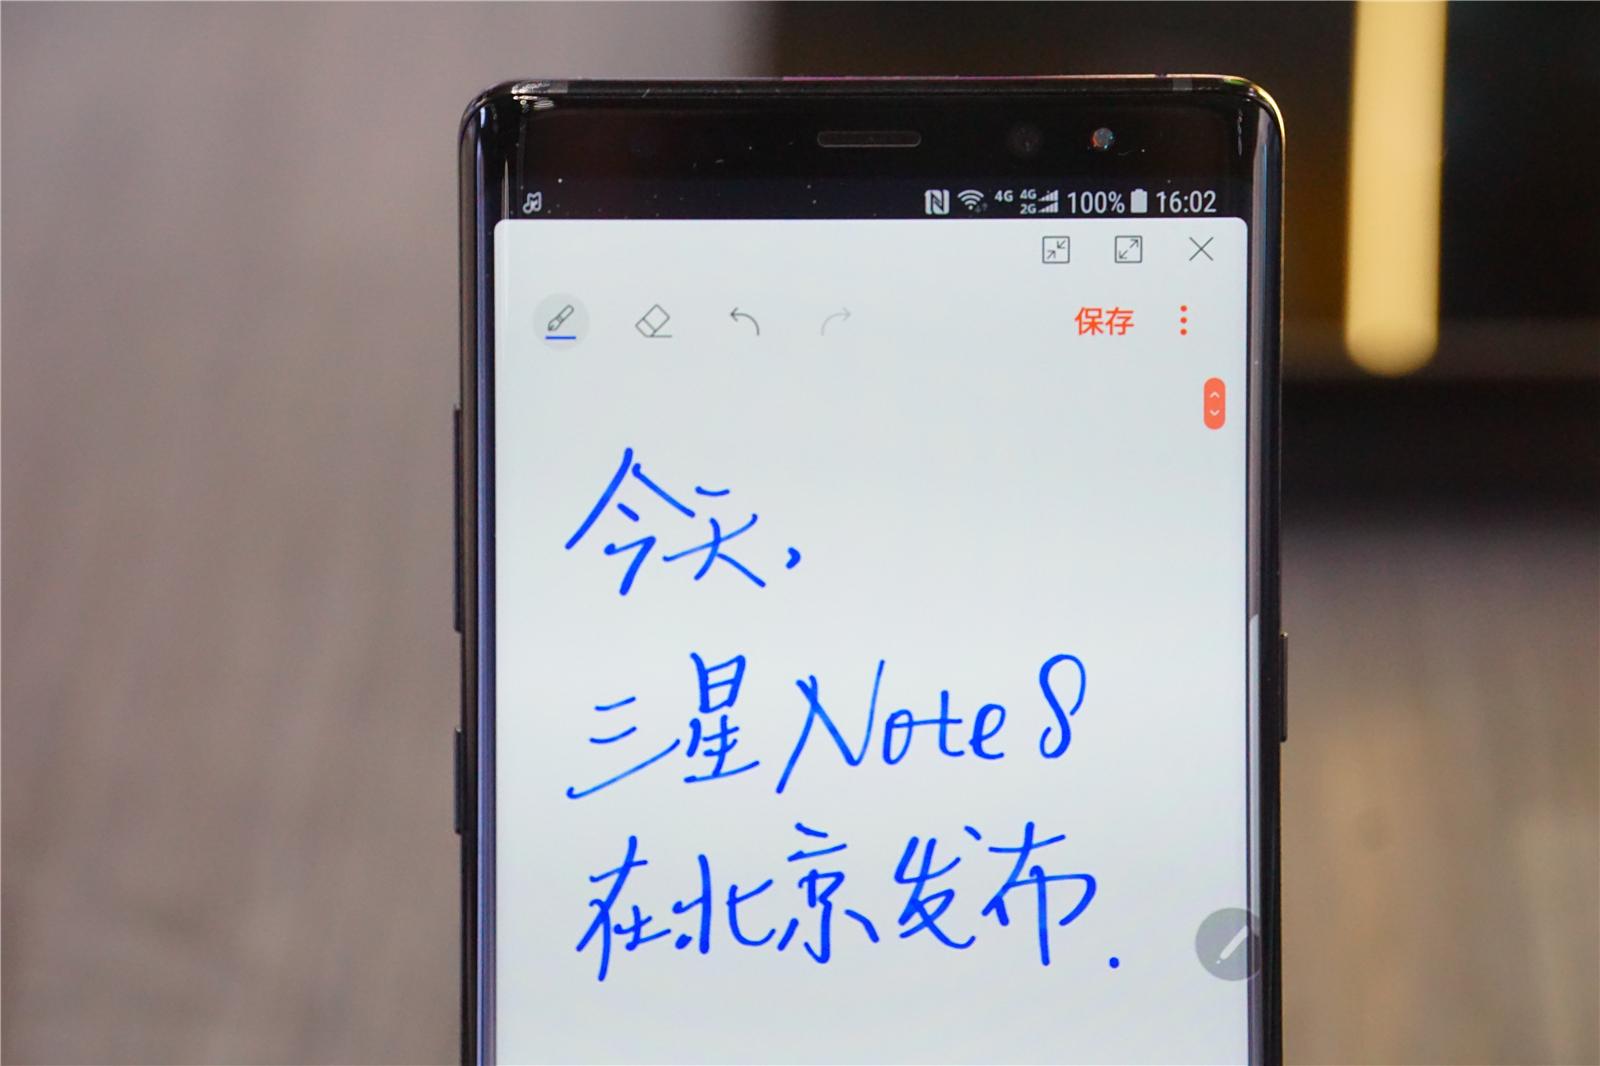 4G 4G 2G 100% 16:02
保存
今天,
三星Note8
在北京发布.